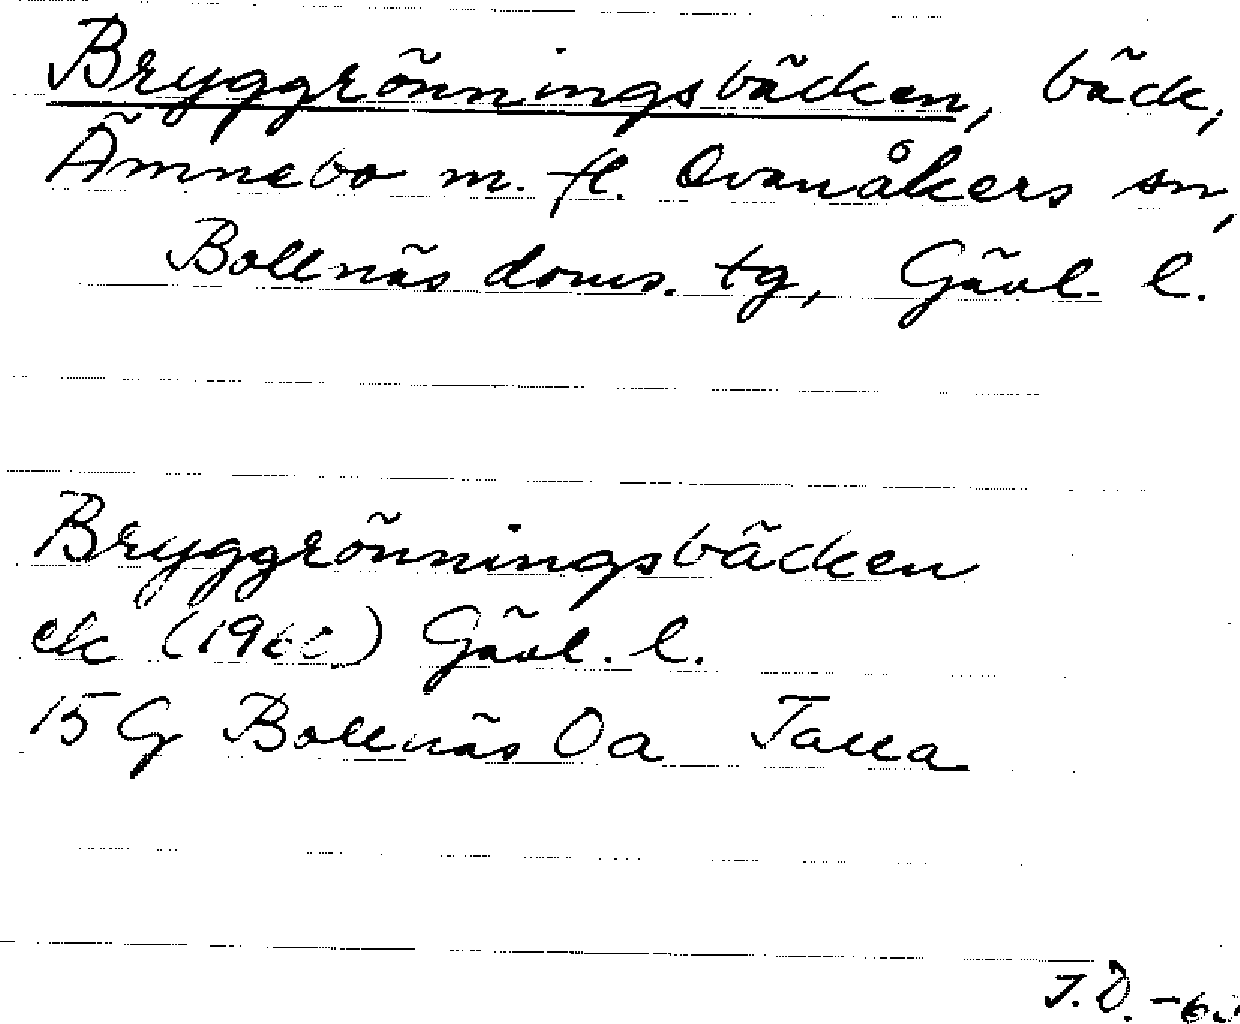 Bryggrönningsbäcken, bäck,
Ämnebo m. fl. Ovanåkers sn,
Bollnäs doms. tg, Gävl. l.
Bryggrönningsbäcken
ek (1960) Gävl. l.
15 G Bollnäs 0a